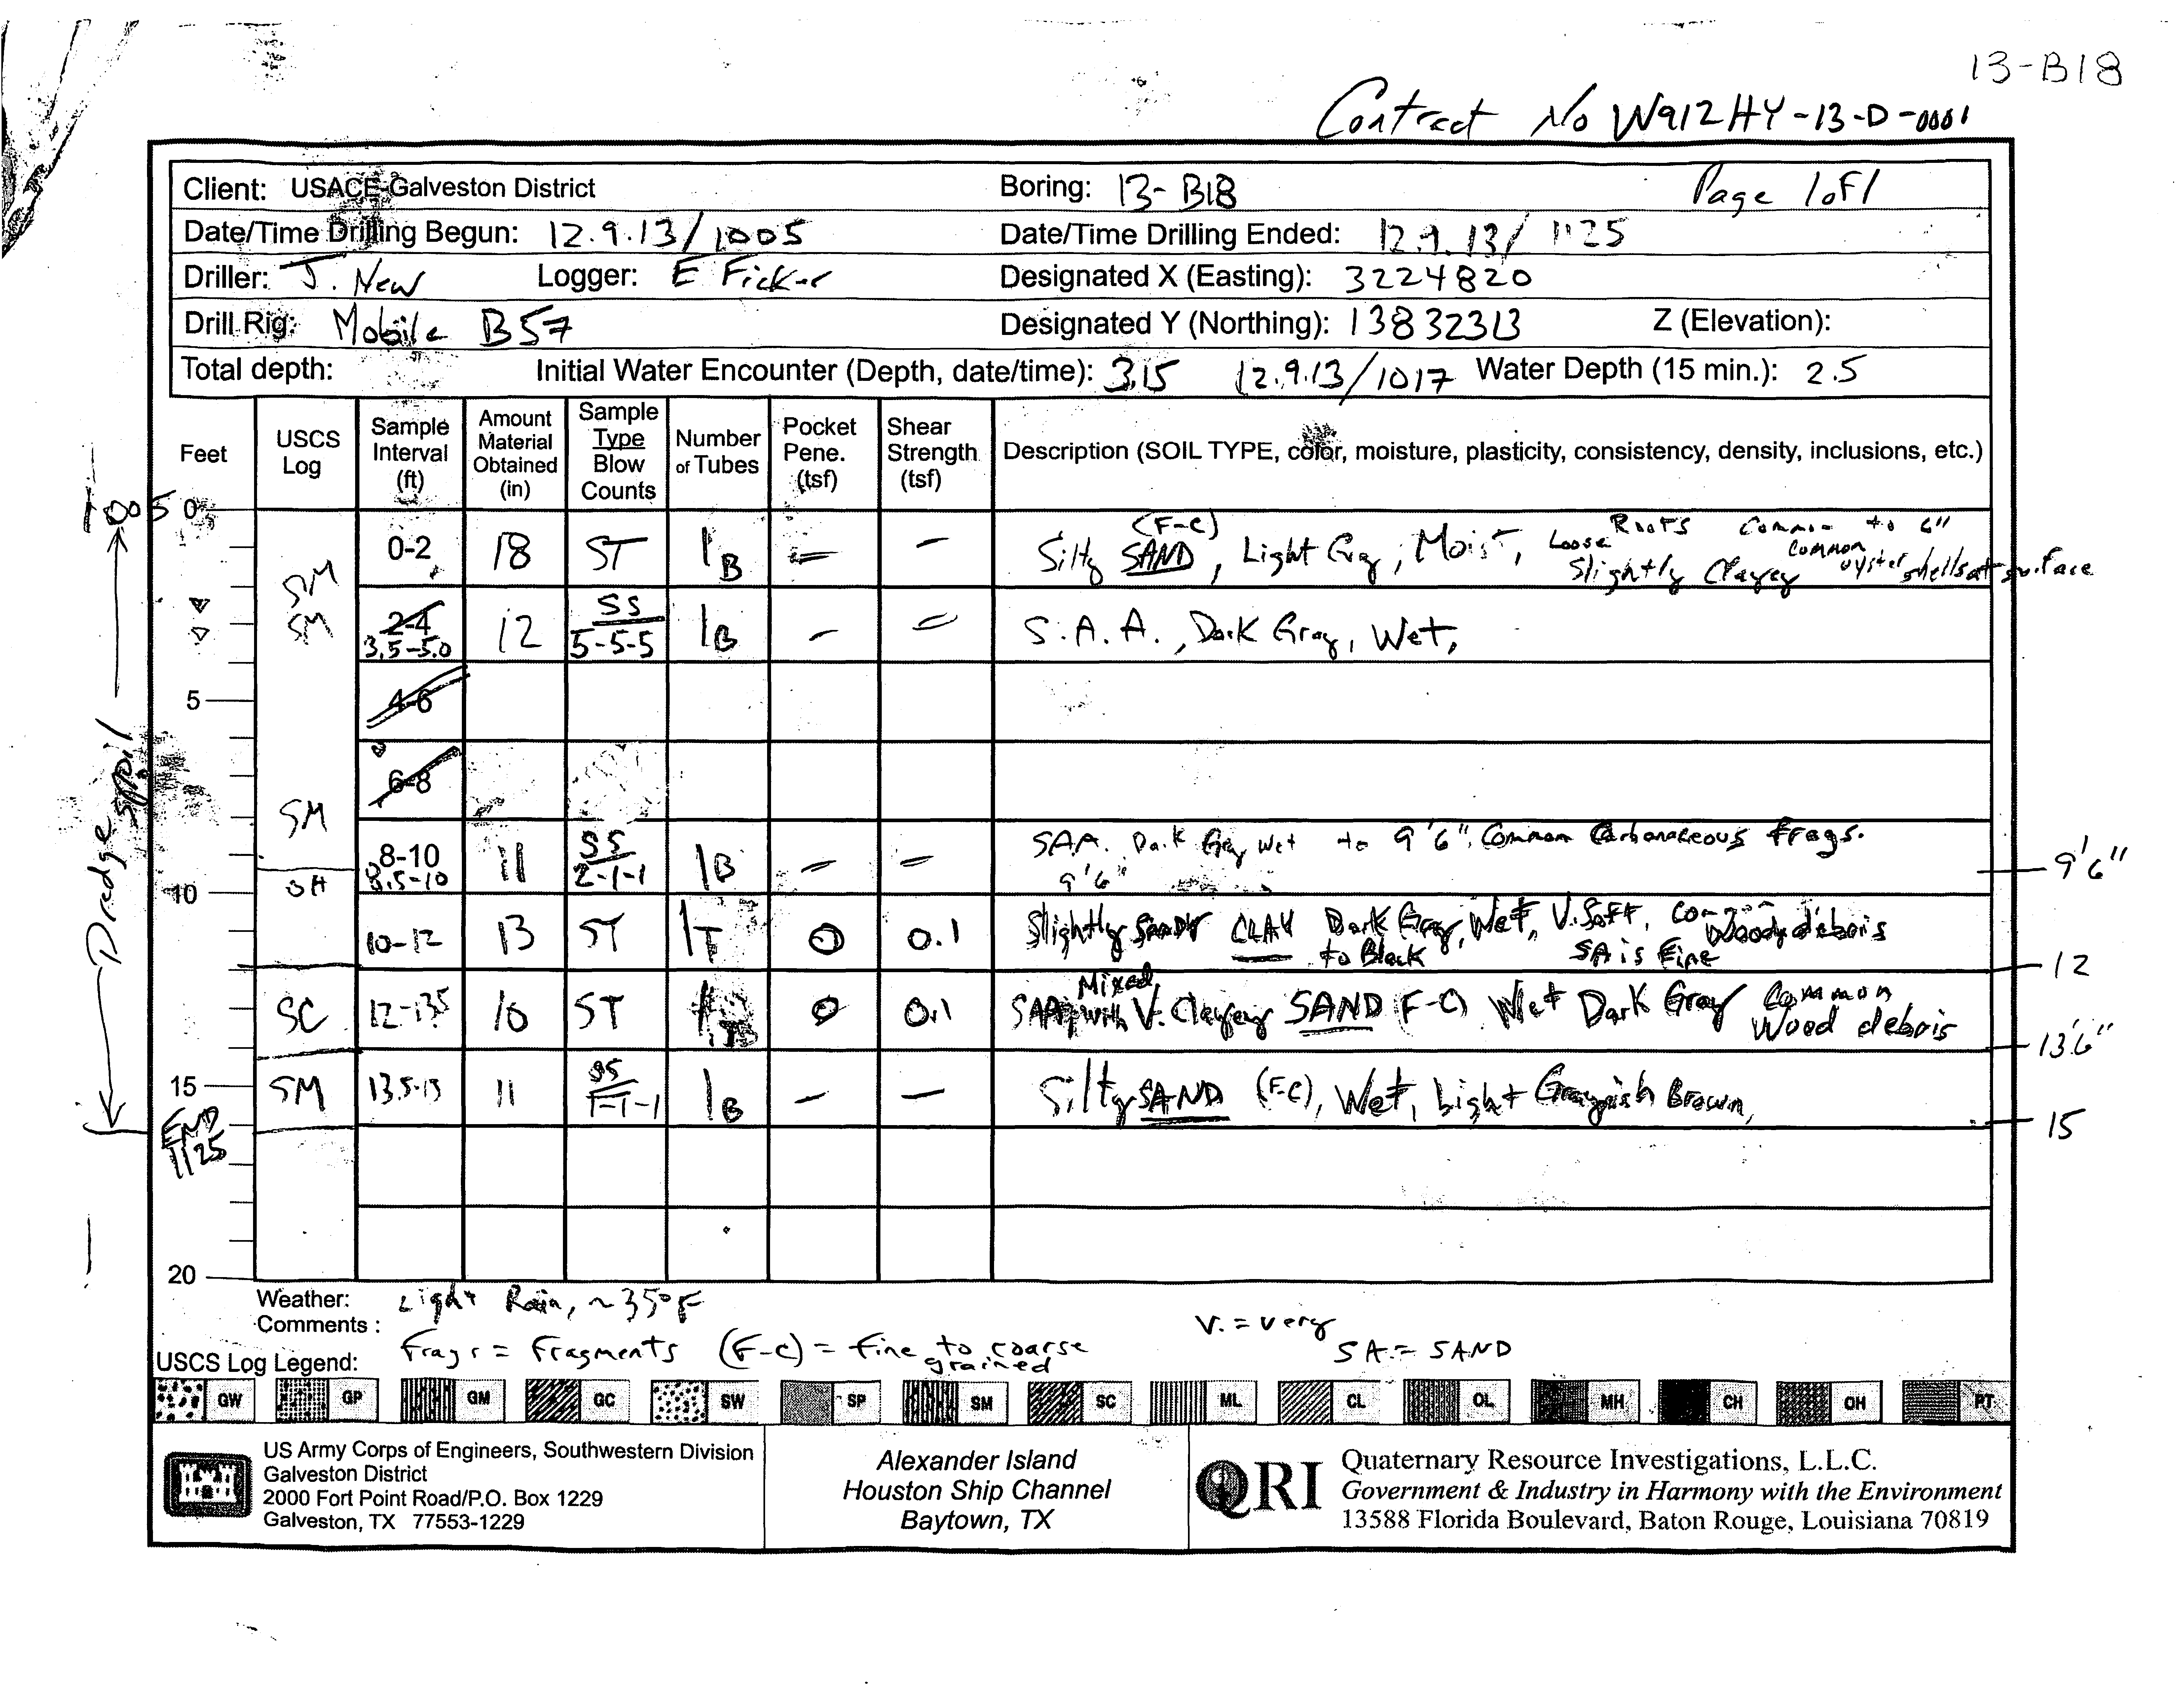 13-B18
Contract No W912HY-13-D-0001
Client: USACE-Galveston District Boring: 13-B18 Page 1 of 1
Date/Time Drilling Begun: 12.9.13/1005 Date/Time Drilling Ended: 12.9.13/1125
Driller: J. New Logger: E Ficker Designated X (Easting): 3224820
Drill Rig: Mobile B57 Designated Y (Northing): 13832313 Z (Elevation):
Total depth: Initial Water Encounter (Depth, date/time): 3.5 12.9.13/1017 Water Depth (15 min.): 2.5
Feet USCS Log Sample Interval (ft) Amount Material Obtained (in) Sample Type Blow Counts Number of Tubes Pocket Pene. (tsf) Shear Strength (tsf) Description (SOIL TYPE, color, moisture, plasticity, consistency, density, inclusions, etc.)
1005 0
SM 0-2 18 ST 1B - - Silty SAND (F-C), Light Gray, Moist, Loose Roots Common to 6"
Slightly Clayey Common oyster shells at surface
SM 2-4 3.5-5.0 12 SS 5-5-5 1B - - S.A.A., Dark Gray, Wet,
5 4-6
6-8
SM 8-10 8.5-10 11 SS 2-1-1 1B - - SAA. Dark Gray Wet to 9'6", Common Carbonaceous frags. 9'6"
9'6"
10 OH
10-12 13 ST 1T 0 0.1 Slightly Sandy CLAY Dark Gray, Wet, V. Soft, Common Woody debris
to Black SA is Fine 12
SC 12-13.5 10 ST 0 0.1 SAA, Mixed with V. Clayey SAND (F-C) Wet Dark Gray Common Wood debris 13'6"
15 SM 13.5-15 11 SS 1-1-1 1B - - Silty SAND (F-C), Wet, Light Grayish Brown, 15
END
1125
20
Dredge Spoil
Weather: Light Rain, ~35°F
Comments: Frags = Fragments (F-C) = fine to coarse grained V. = very SA = SAND
USCS Log Legend:
GW GP GM GC SW SP SM SC ML CL OL MH CH OH PT
US Army Corps of Engineers, Southwestern Division
Galveston District
2000 Fort Point Road/P.O. Box 1229
Galveston, TX 77553-1229
Alexander Island
Houston Ship Channel
Baytown, TX
QRI
Quaternary Resource Investigations, L.L.C.
Government & Industry in Harmony with the Environment
13588 Florida Boulevard, Baton Rouge, Louisiana 70819